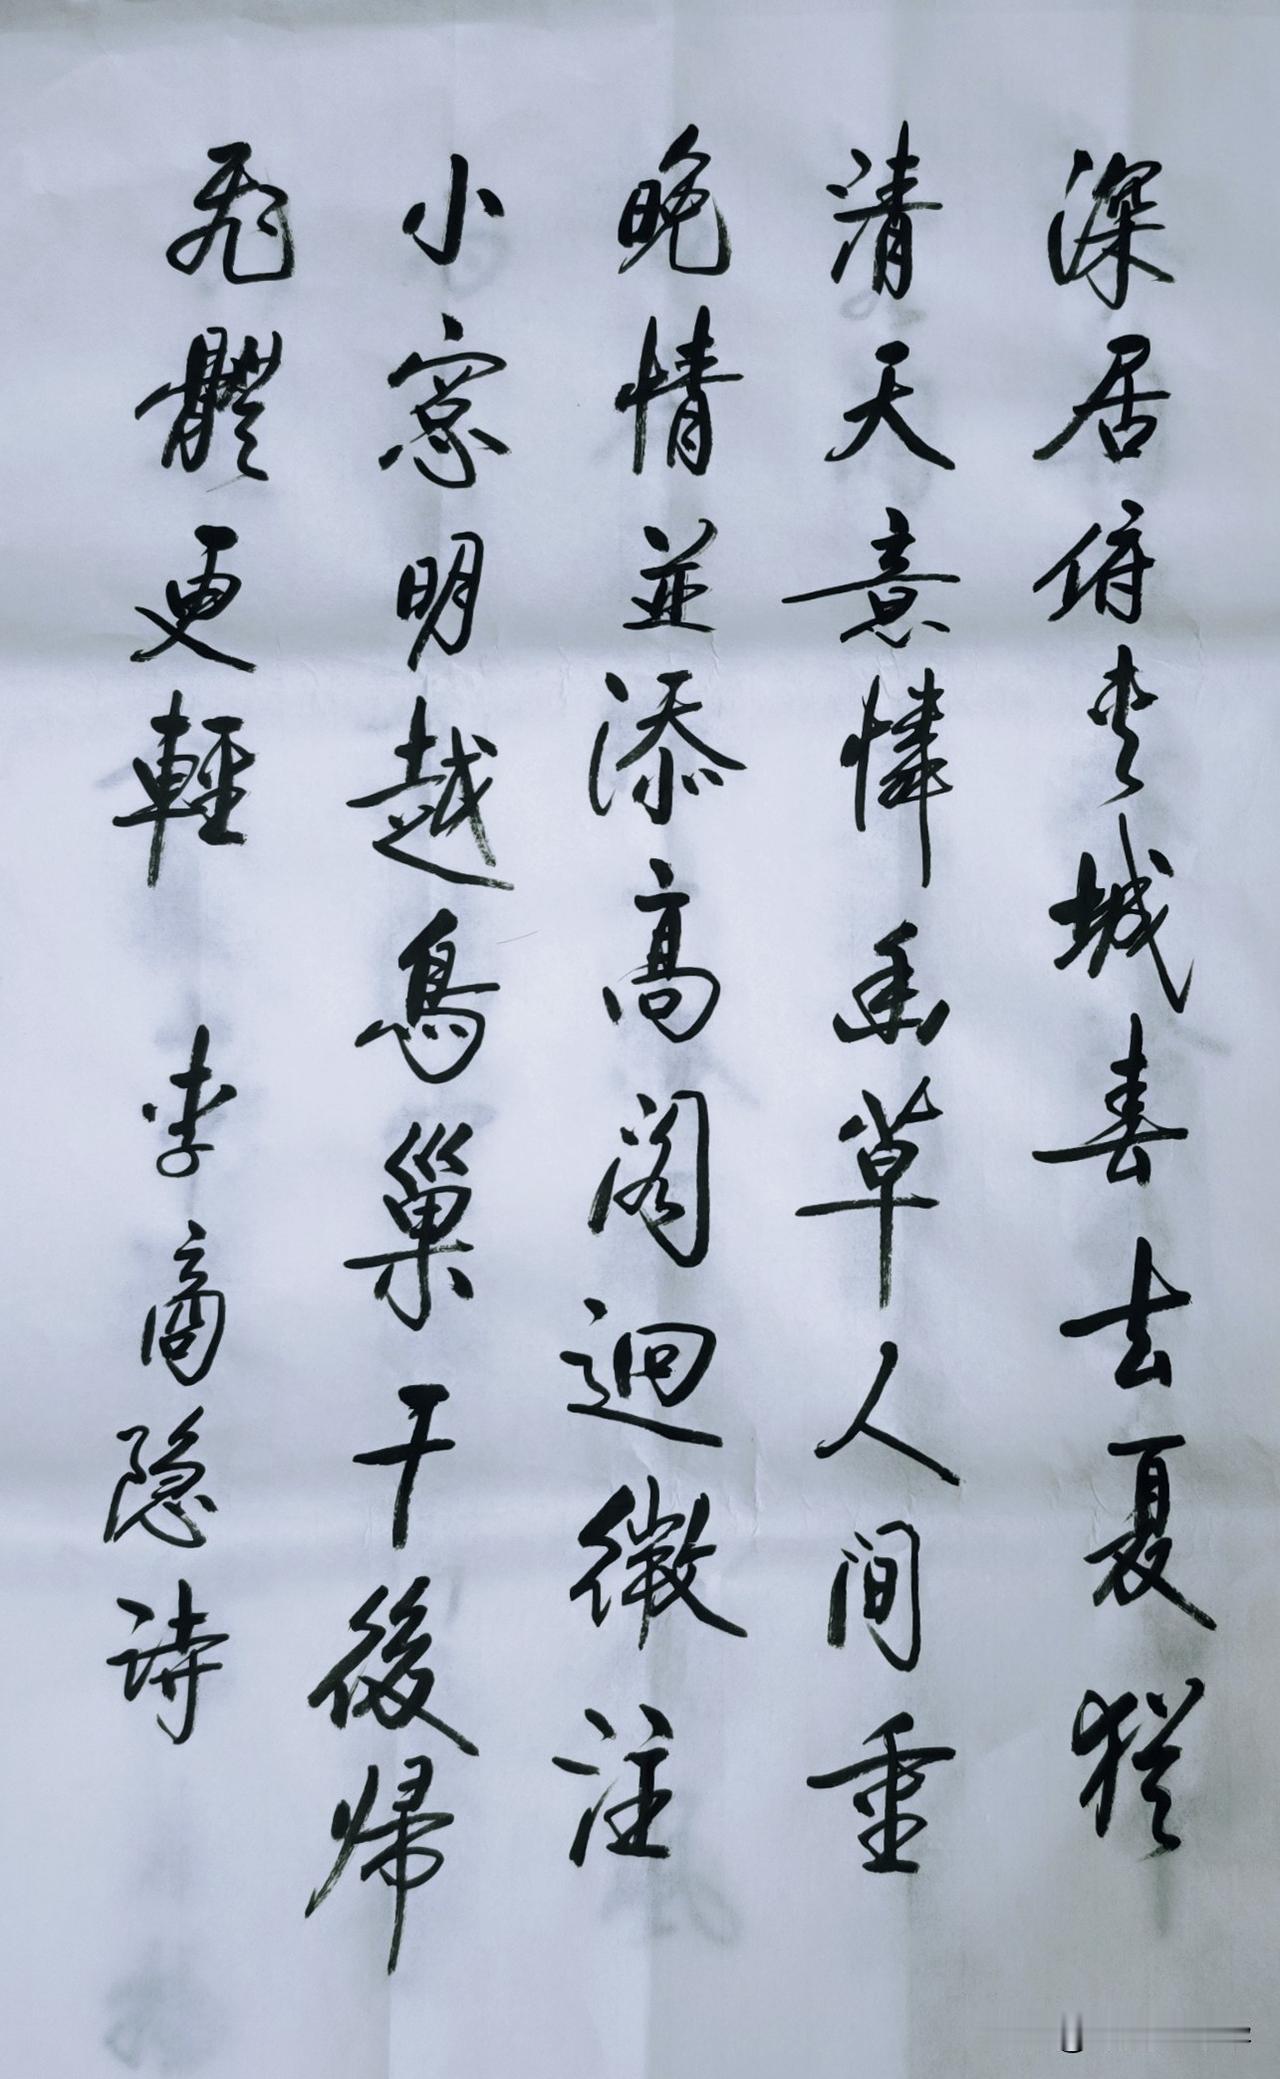 深居俯夹城春去夏猶
清天意憐幽草人间重
晚情並添高阁迥微注
小窓明越鳥巢干後帰
飛體更輕 李商隐诗